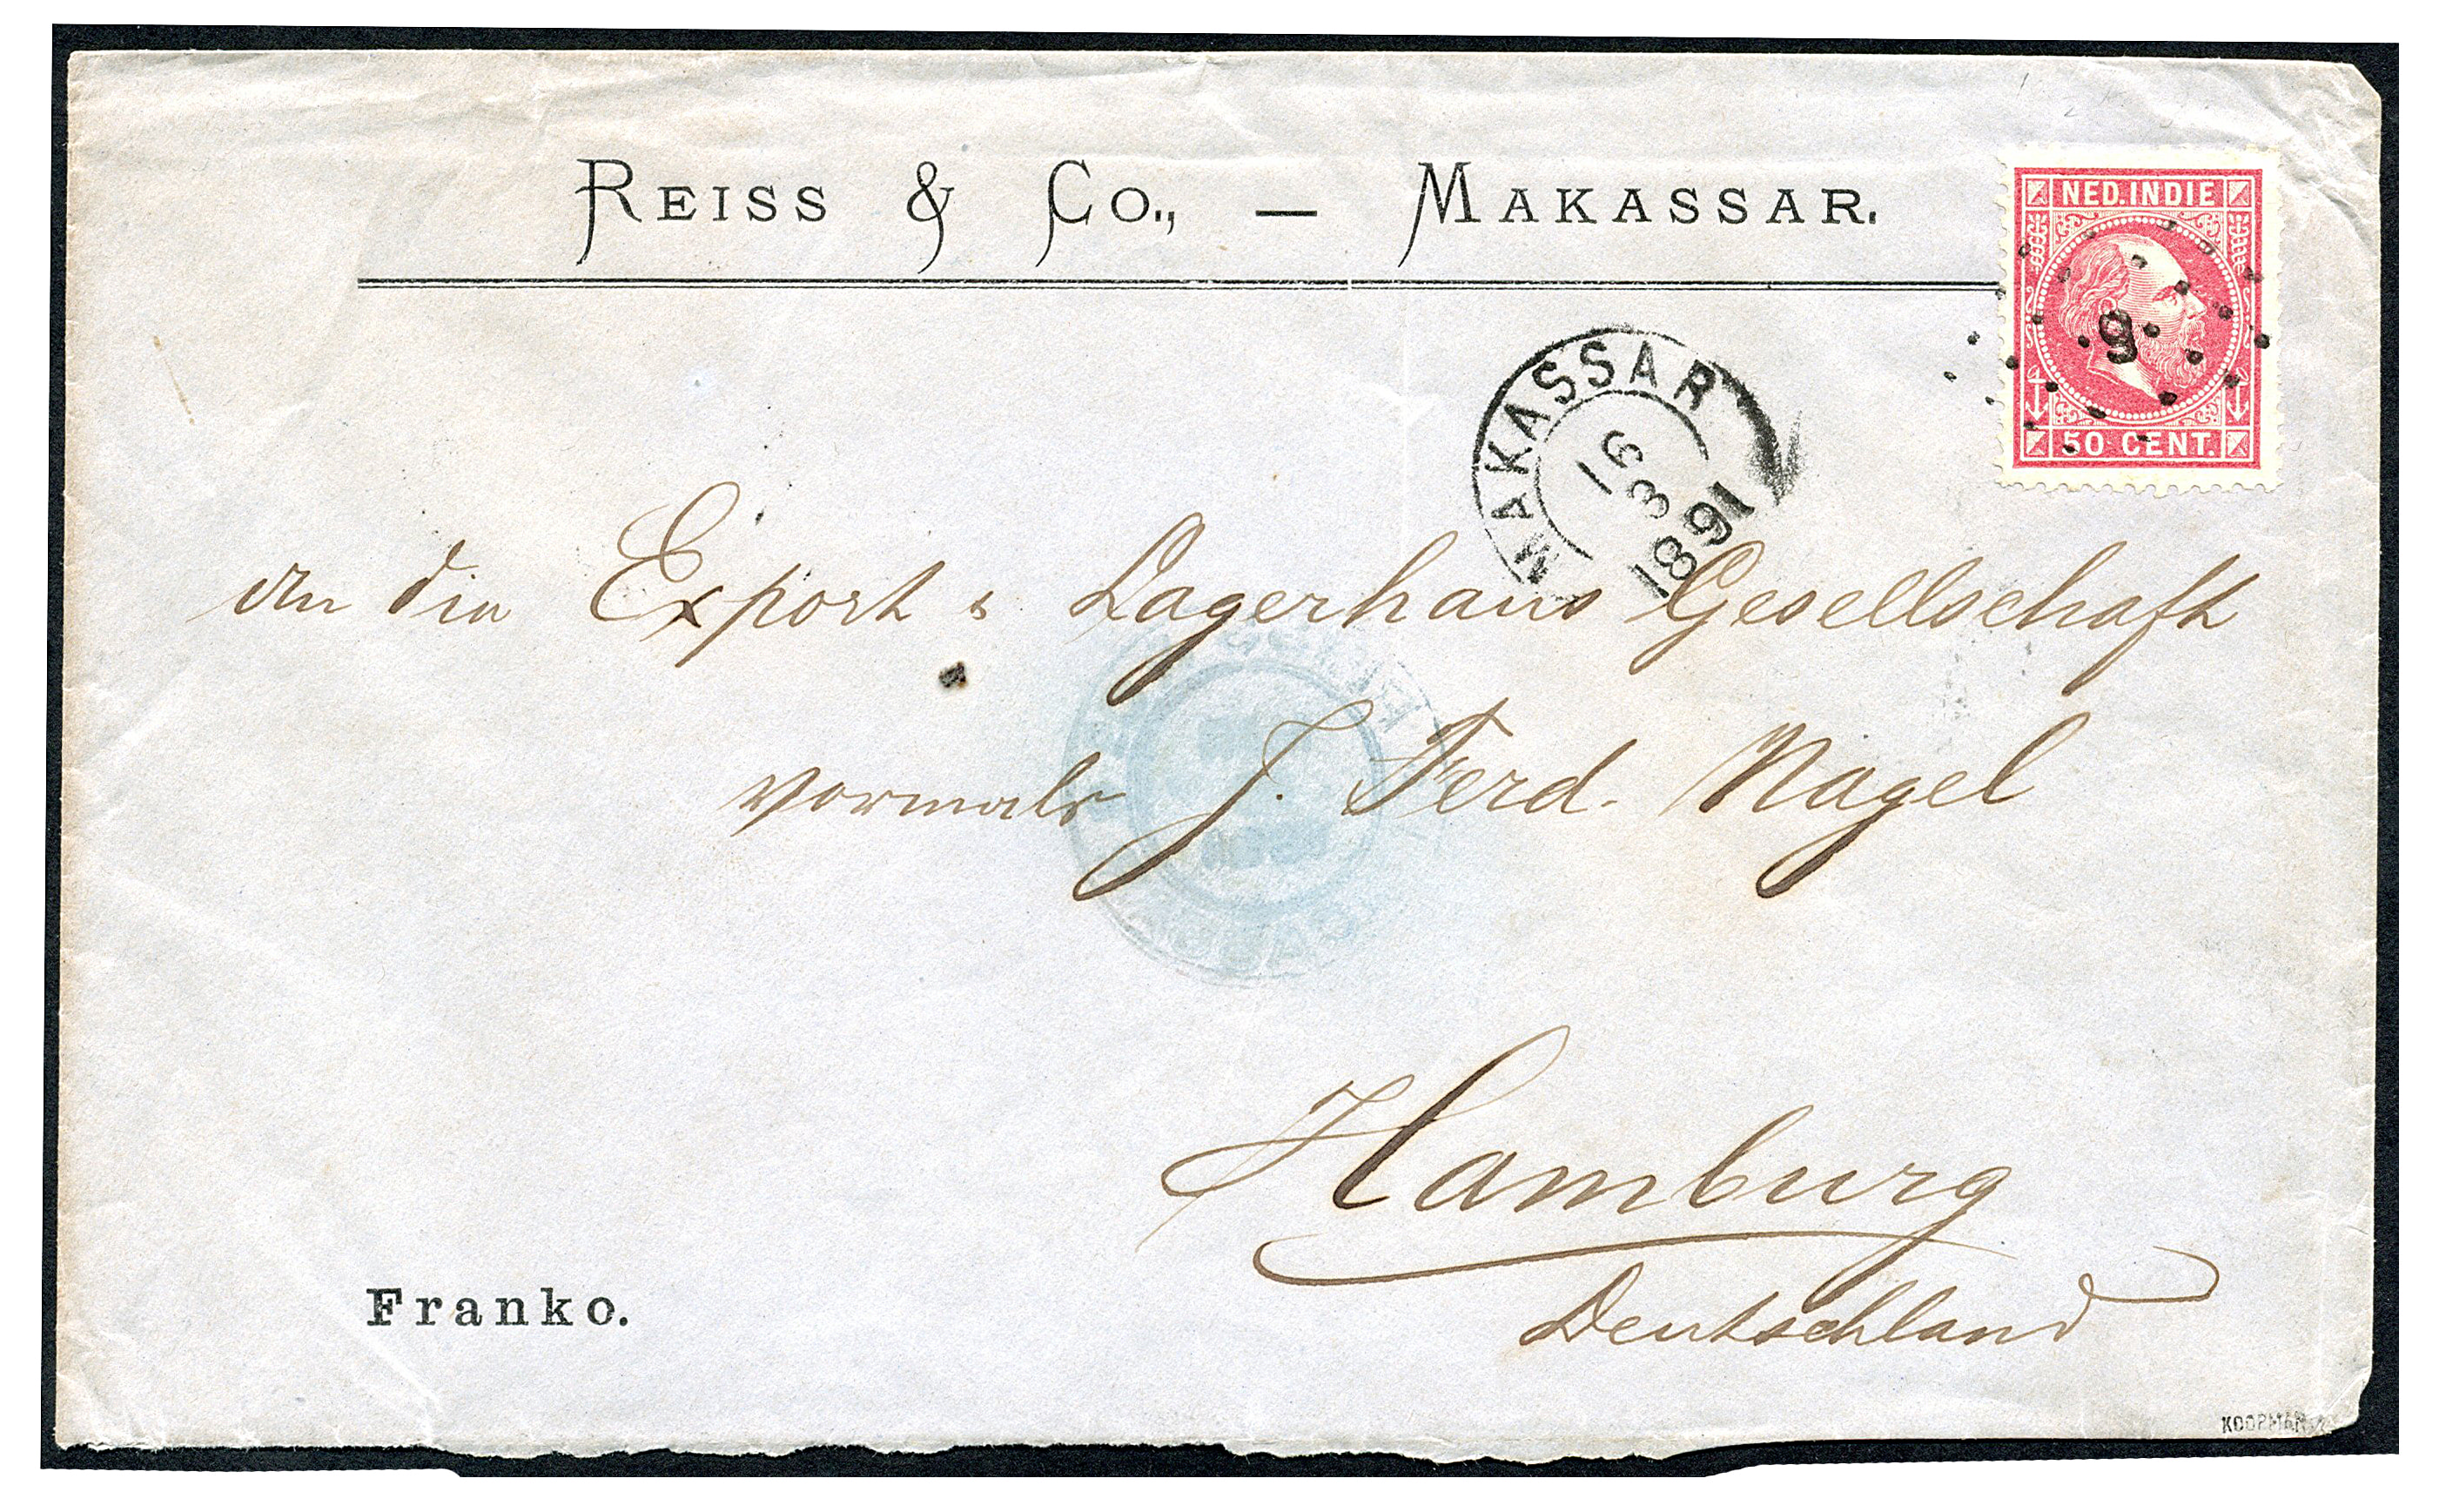 REISS & Co., — MAKASSAR.
NED. INDIE
9
50 CENT.
MAKASSAR
16
3
1891
An die Export & Lagerhaus Gesellschaft
vormals J. Ferd. Nagel
Hamburg
Deutschland
Franko.
KOOPMAN